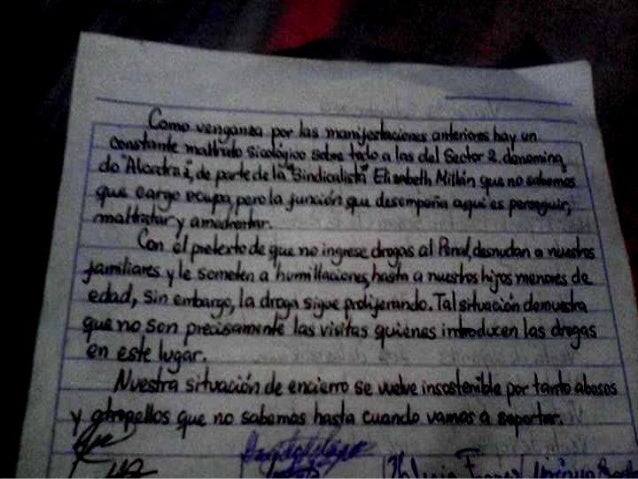 Como venganza por las manifestaciones anteriores hay un
constante maltrato sicológico sobre todo a las del Sector 2. denomina
do "Alcatraz", de parte de la "Sindicalista" Elizabeth Millán que no sabemos
que cargo ocupa, pero la función que desempeña aquí es perseguir,
maltratar y amedrentar.
Con el pretexto de que no ingrese drogas al Penal, desnudan a nuestros
familiares y le someten a humillaciones, hasta a nuestros hijos menores de
edad, sin embargo, la droga sigue proliferando. Tal situación demuestra
que no son precisamente las visitas quienes introducen las drogas
en este lugar.
Nuestra situación de encierro se vuelve insostenible por tanto abusos
y atropellos que no sabemos hasta cuando vamos a soportar.